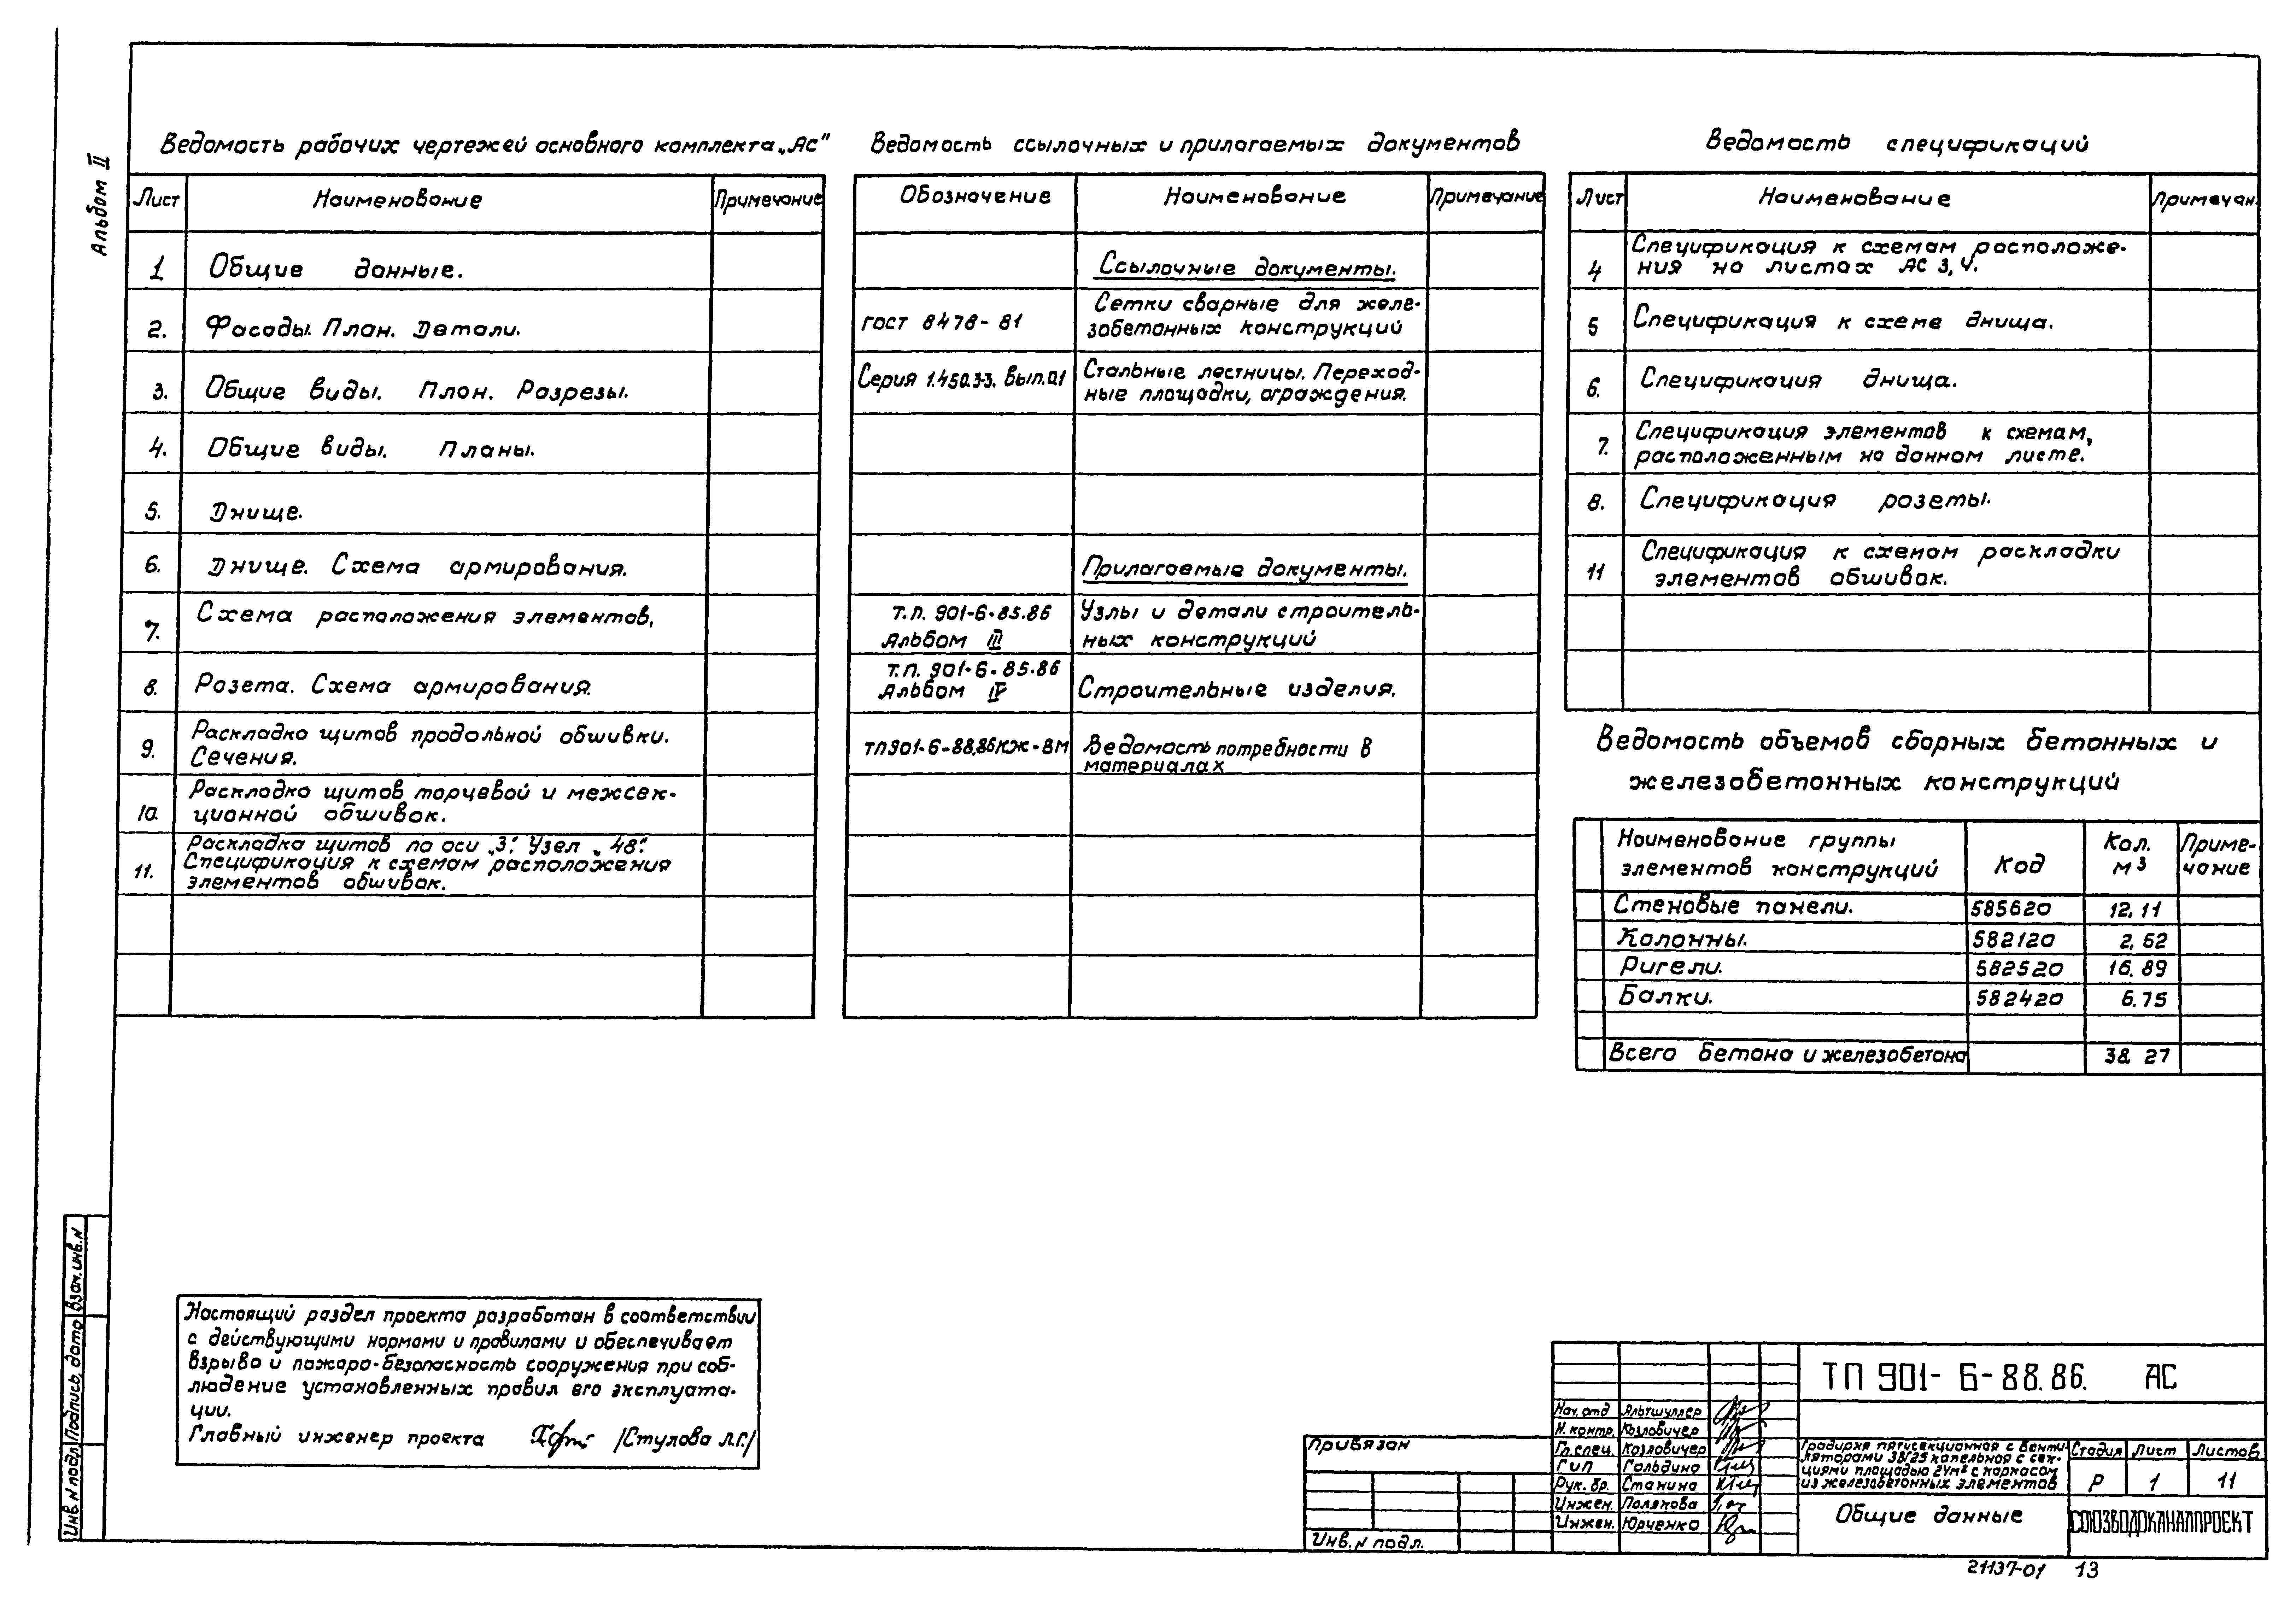 Альбом II
Ведомость рабочих чертежей основного комплекта „АС"
Лист Наименование Примечание
1 Общие данные.
2. Фасады. План. Детали.
3. Общие виды. План. Разрезы.
4. Общие виды. Планы.
5. Днище.
6. Днище. Схема армирования.
7. Схема расположения элементов.
8. Розета. Схема армирования.
9. Раскладка щитов продольной обшивки.
Сечения.
10. Раскладка щитов торцевой и межсек-
ционной обшивок.
11. Раскладка щитов по оси „3". Узел „48".
Спецификация к схемам расположения
элементов обшивок.
Ведомость ссылочных и прилагаемых документов
Обозначение Наименование Примечание
Ссылочные документы.
ГОСТ 8478-81 Сетки сварные для желе-
зобетонных конструкций
Серия 1.450.3-3. Вып.0.1 Стальные лестницы. Переход-
ные площадки, ограждения.
Прилагаемые документы.
Т.П. 901-6-85.86 Узлы и детали строитель-
Альбом III ных конструкций
Т.П. 901-6-85.86
Альбом IV Строительные изделия.
ТП901-6-88.86КЖ-ВМ Ведомость потребности в
материалах
Ведомость спецификаций
Лист Наименование Примечан.
4 Спецификация к схемам расположе-
ния на листах АС 3,4.
5 Спецификация к схеме днища.
6. Спецификация днища.
7. Спецификация элементов к схемам,
расположенным на данном листе.
8. Спецификация розеты.
11 Спецификация к схемам раскладки
элементов обшивок.
Ведомость объемов сборных бетонных и
железобетонных конструкций
Наименование группы элементов конструкций Код Кол. м3 Приме-чание
Стеновые панели. 585620 12.11
Колонны. 582120 2,52
Ригели. 582520 16.89
Балки. 582420 6.75
Всего бетона и железобетона 38.27
Настоящий раздел проекта разработан в соответствии
с действующими нормами и правилами и обеспечивает
взрыво и пожаро-безопасность сооружения при соб-
людение установленных правил его эксплуата-
ции.
Главный инженер проекта /Стулова Л.Г./
Взам.инв.N
Подпись, дата
Инв.N подл.
Привязан
Инв.N подл.
Нач.отд Альтшуллер
Н.контр. Козловичер
Гл.спец. Козловичер
ГИП Гольдина
Рук.бр. Станина
Инжен. Полякова
Инжен. Юрченко
ТП 901-6-88.86. АС
Градирня пятисекционная с венти-
ляторами 3ВГ25 капельная с сек-
циями площадью 24м² с каркасом
из железобетонных элементов
Стадия Лист Листов
Р 1 11
Общие данные
СОЮЗВОДОКАНАЛПРОЕКТ
21137-01 13